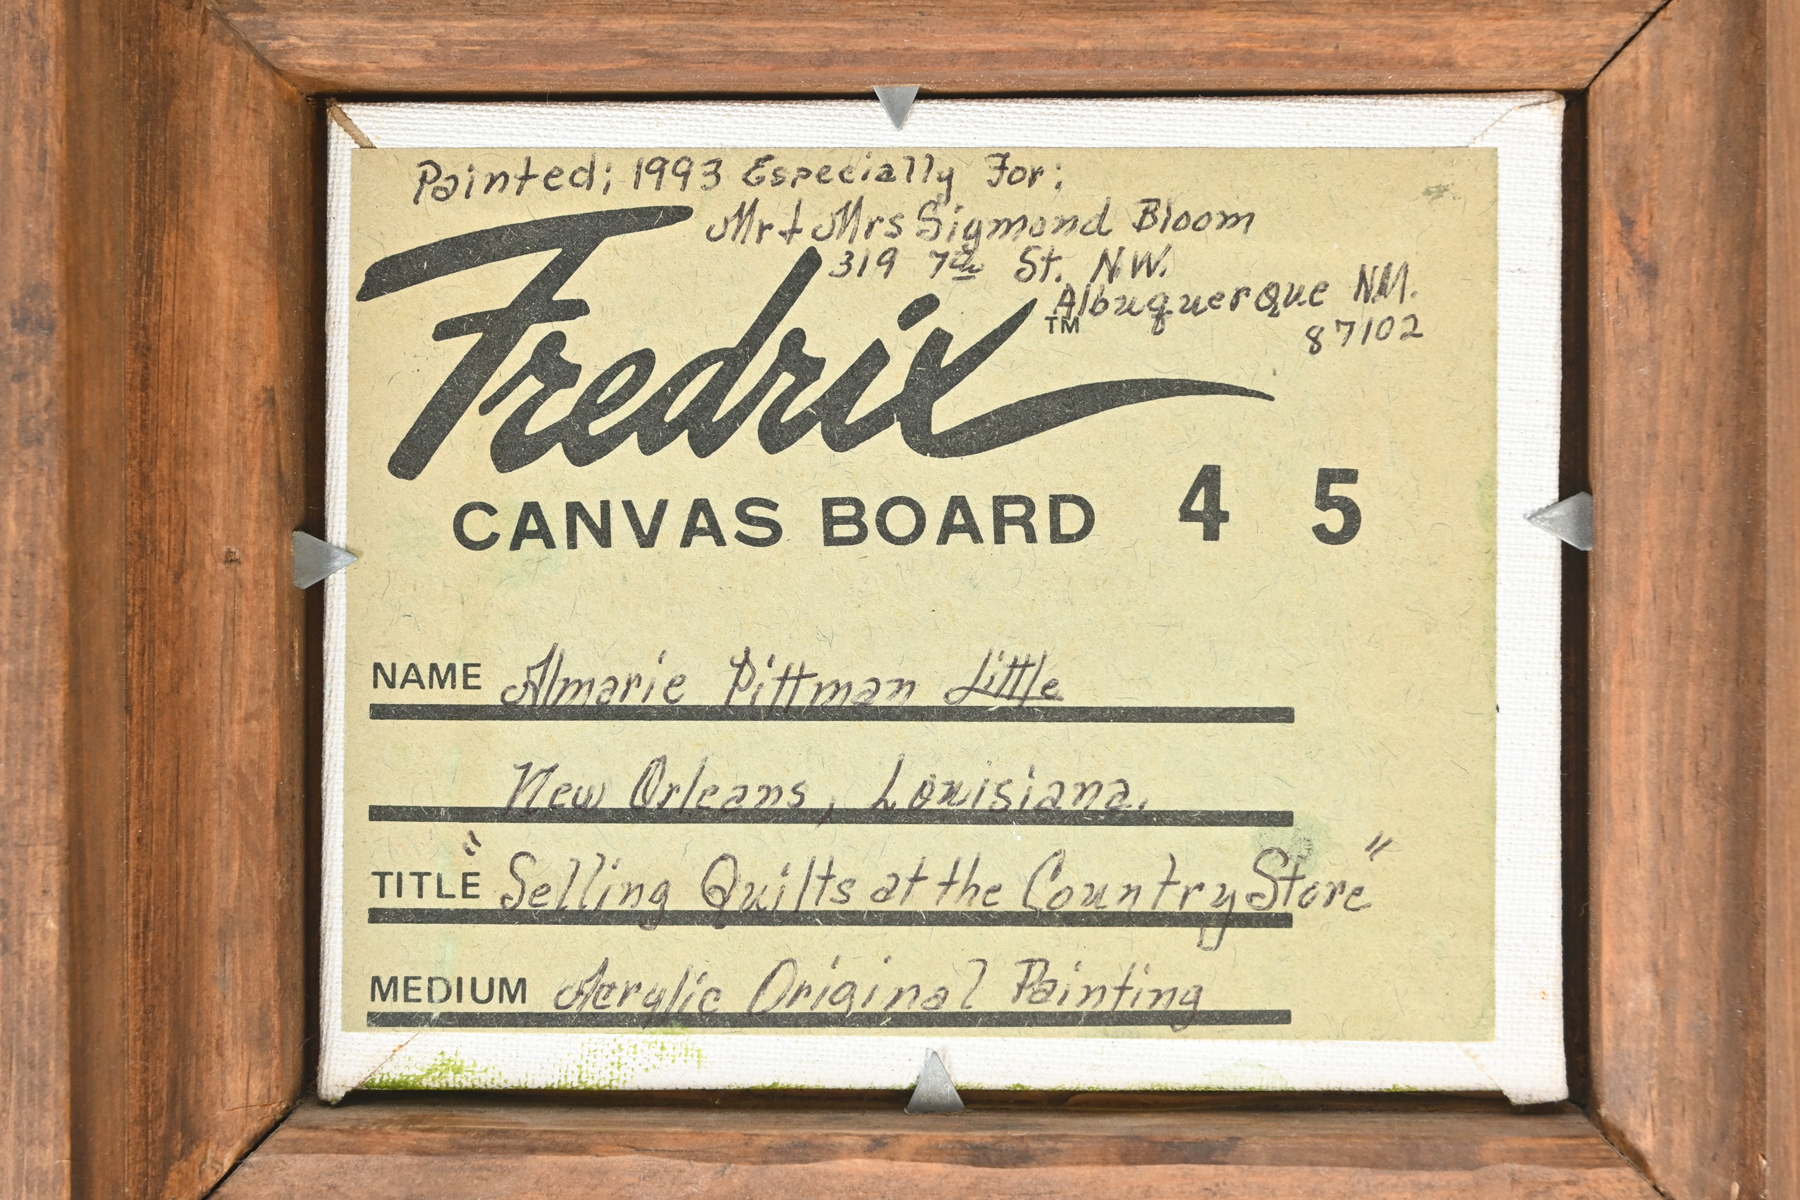 Painted; 1993 Especially For;
Mr & Mrs Sigmond Bloom
319 7th St. N.W.
Albuquerque N.M.
87102
Fredrix™
CANVAS BOARD 4 5
NAME Almarie Pittman Little
New Orleans, Louisiana.
TITLE "Selling Quilts at the Country Store"
MEDIUM Acrylic Original Painting